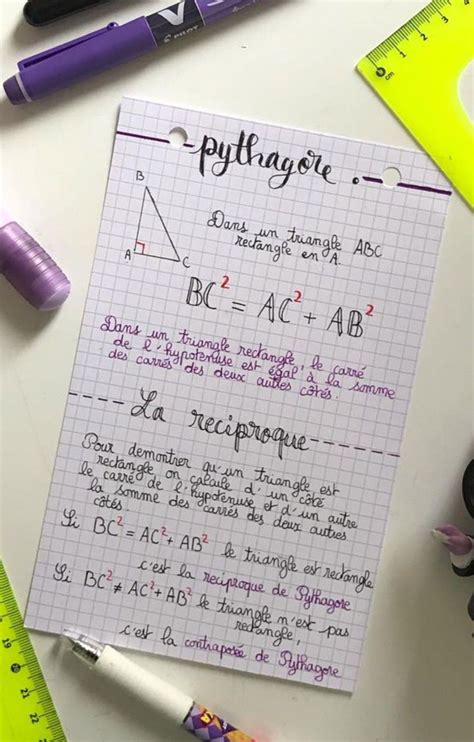 V PILOT
cm 1 2 3 4
pythagore.
B
A
C
Dans un triangle ABC
rectangle en A.
BC² = AC² + AB²
Dans un triangle rectangle, le carré
de l'hypoténuse est égal à la somme
des carrés des deux autres côtés.
La reciproque
Pour démontrer qu'un triangle est
rectangle on calcule d'un côté
le carré de l'hypoténuse et d'un autre
la somme des carrés des deux autres
côtés.
Si BC² = AC² + AB² le triangle est rectangle
c'est la reciproque de Pythagore
Si BC² ≠ AC² + AB² le triangle n'est pas
rectangle,
c'est la contraposée de Pythagore
19 20 21 22